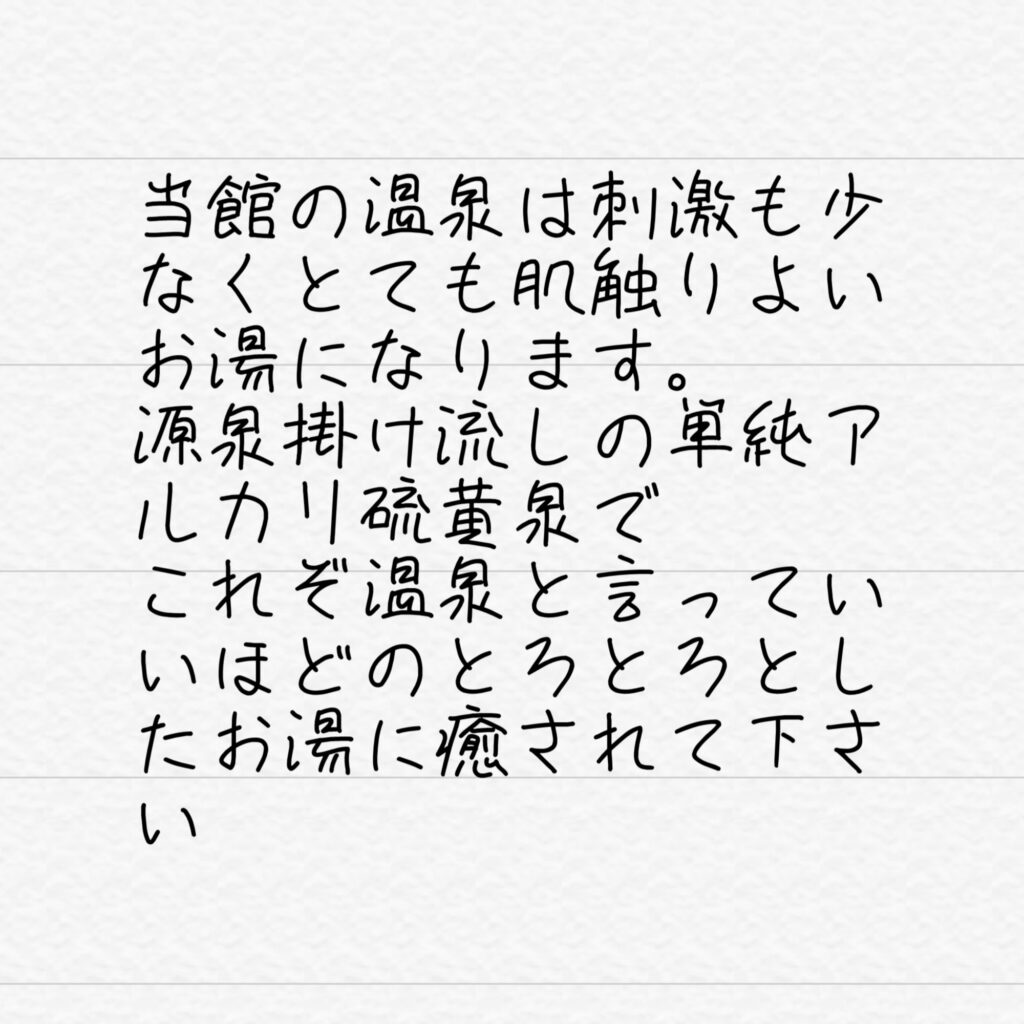 当館の温泉は刺激も少
なくとても肌触りよい
お湯になります。
源泉掛け流しの単純ア
ルカリ硫黄泉で
これぞ温泉と言ってい
いほどのとろとろとし
たお湯に癒されて下さ
い